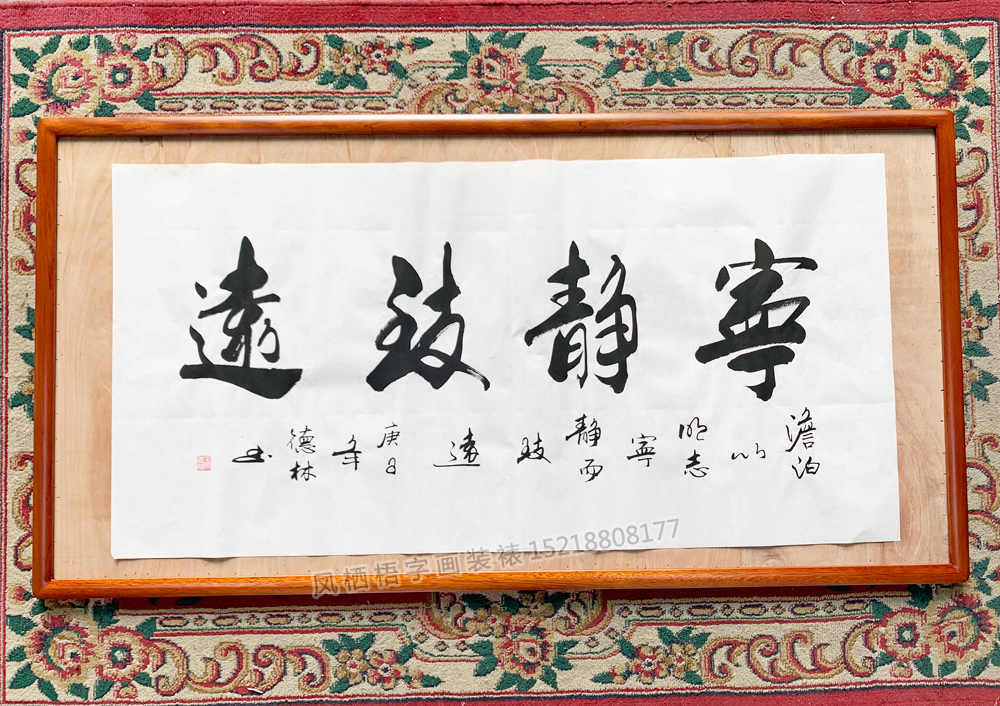 寧静致遠
澹泊以明志寧静而致遠
庚子年德林书
风栖梧字画装裱15218808177